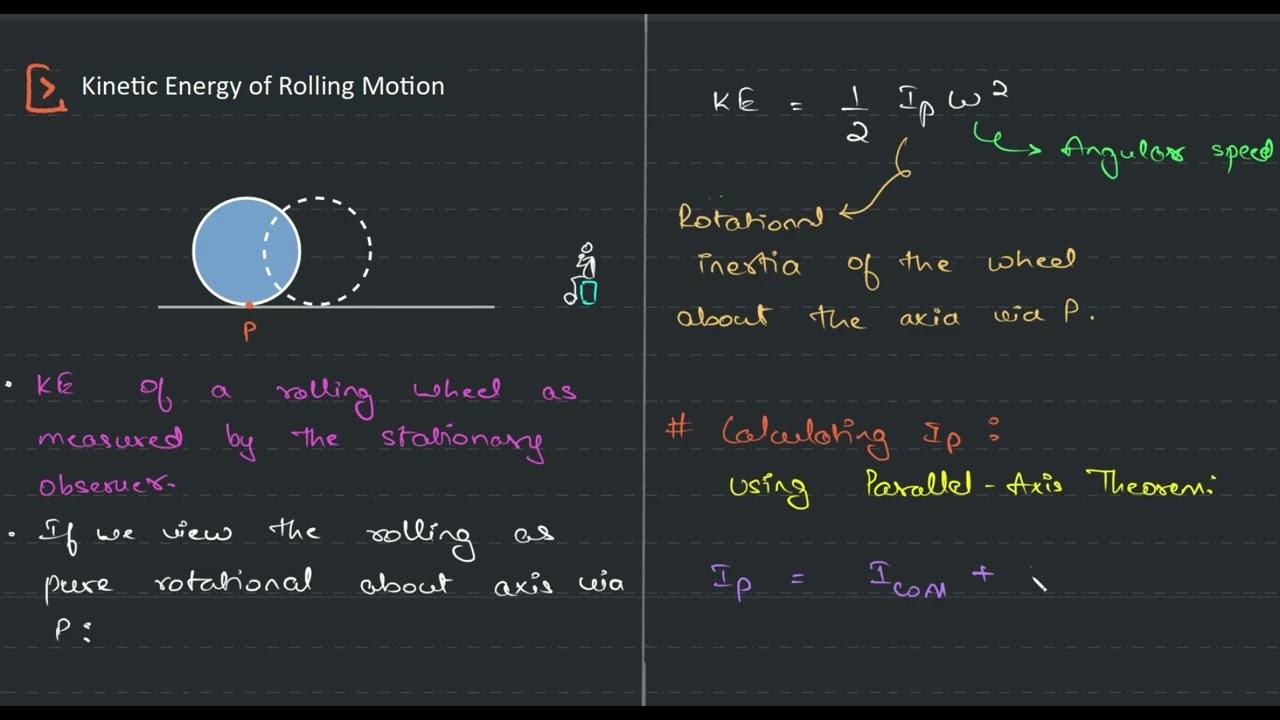 Kinetic Energy of Rolling Motion
P
• KE of a rolling wheel as
measured by the stationary
observer.
• If we view the rolling as
pure rotational about axis via
P:
KE = 1/2 I_P ω²
Angular speed
Rotational
inertia of the wheel
about the axia via P.
# Calculating I_P :
using Parallel-Axis Theorem:
I_P = I_COM +